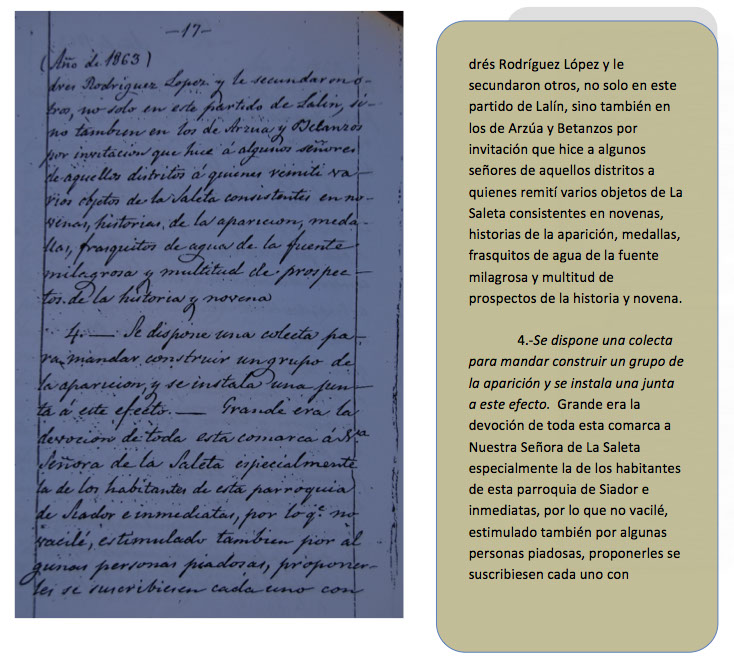 —17—
(Año de 1863)
dres Rodriguez Lopez y le secundaron o-
tros, no solo en este partido de Lalin, si-
no tambien en los de Arzua y Betanzos
por invitacion que hice á algunos señores
de aquellos distritos á quienes remiti va-
rios objetos de la Saleta consistentes en no-
venas, historias, de la aparicion, meda-
llas, frasquitos de agua de la fuente
milagrosa y multitud de prospec-
tos de la historia y novena
4.— Se dispone una colecta pa-
ra mandar construir un grupo de
la aparicion, y se instala una jun-
ta á este efecto.— Grande era la
devocion de toda esta comarca á Nª
Señora de la Saleta especialmente
la de los habitantes de esta parroquia
de Siador e inmediatas, por lo q.e no
vacilé, estimulado tambien por al
gunas personas piadosas, proponer-
les se suscribiesen cada uno con
drés Rodríguez López y le
secundaron otros, no solo en este
partido de Lalín, sino también en
los de Arzúa y Betanzos por
invitación que hice a algunos
señores de aquellos distritos a
quienes remití varios objetos de La
Saleta consistentes en novenas,
historias de la aparición, medallas,
frasquitos de agua de la fuente
milagrosa y multitud de
prospectos de la historia y novena.
4.-Se dispone una colecta
para mandar construir un grupo de
la aparición y se instala una junta
a este efecto. Grande era la
devoción de toda esta comarca a
Nuestra Señora de La Saleta
especialmente la de los habitantes
de esta parroquia de Siador e
inmediatas, por lo que no vacilé,
estimulado también por algunas
personas piadosas, proponerles se
suscribiesen cada uno con